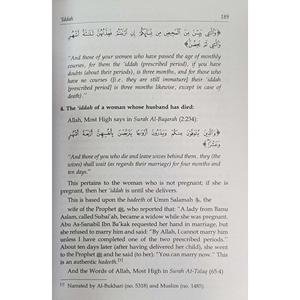 'Iddah 189
"And those of your women who have passed the age of monthly
courses, for them the 'iddah (prescribed period), if you have
doubts (about their periods), is three months, and for those who
have no courses [(i.e. they are still immature) their 'iddah
(prescribed period) is three months likewise except in case of
death]."
4. The 'iddah of a woman whose husband has died:
Allah, Most High says in Surah Al-Baqarah (2:234):
"And those of you who die and leave wives behind them, they (the wives)
shall wait (as regards their marriage) for four months and
ten days."
This pertains to the woman who is not pregnant; if she is
pregnant, then her 'iddah is until she delivers.
This is based upon the hadeeth of Umm Salamah, the
wife of the Prophet, who reported that: "A lady from Banu
Aslam, called Subai'ah, became a widow while she was pregnant.
Abu As-Sanabil Ibn Ba'kak requested her hand in marriage, but
she refused to marry him and said: "By Allah, I cannot marry him
unless I have completed one of the two prescribed periods." About
ten days later (after having delivered her child), she went
to the Prophet and he said (to her): "You can marry now." This is
an authentic hadeeth.[1]
And the Words of Allah, Most High in Surah At-Talaq (65:4)
[1] Narrated by Al-Bukhari (no. 5318) and Muslim (no. 1485).